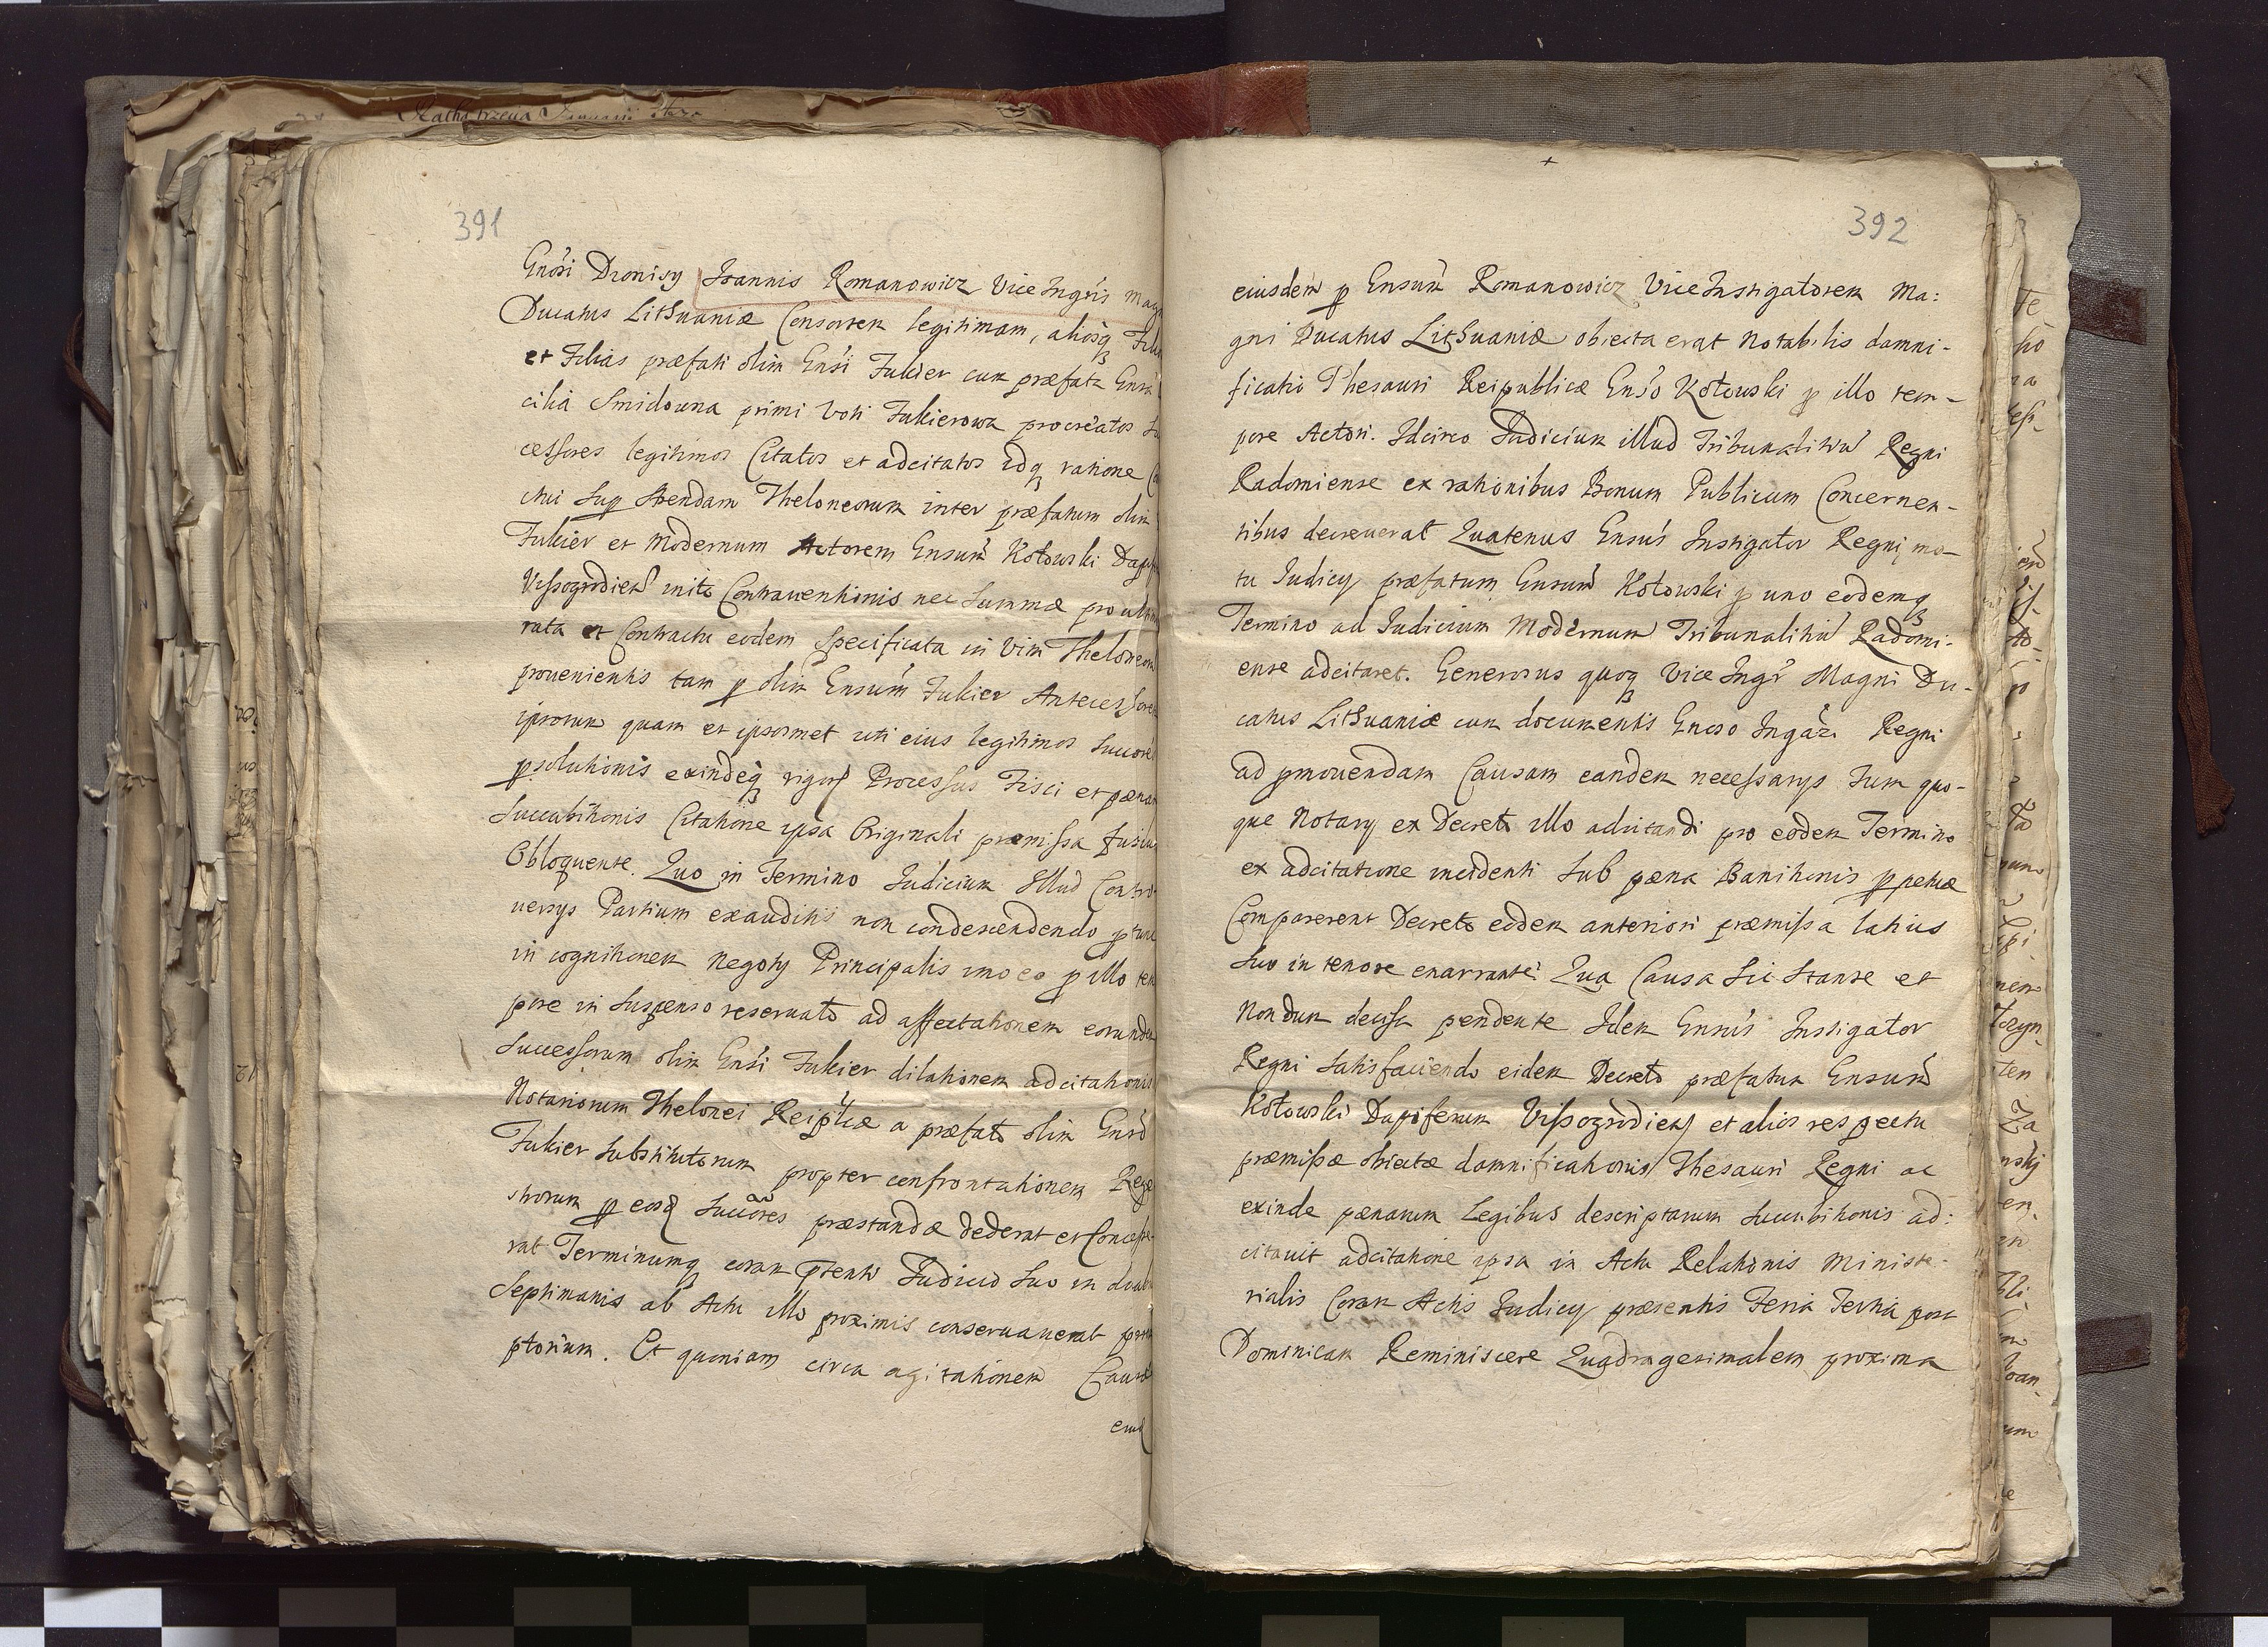 391
Gnosi Dionisy Ioannis Romanowicz Vice Ingris Mag
Ducatus Lithuaniæ Consortem legitimam, aliosq Filios
et Filias præfati olim Gnsi Fukier cum præfata Gnsa
cilia Smidowna primi Voti Fukierowa procreatos Su
cessores legitimos Citatos et adcitatos idq ratione
ctui sup Theloneorum inter præfatum olim
Fukier et Modernum Actorem Gnsum Kotowski Dapif
Vissogrodien inito Contraventionis nec Summæ pro
rata et Contractu eodem Specificata in Vim Theloneor
provenientis tam p olim Gnsum Fukier Antecessore
ipsorum quam et ipsosmet uti eius legitimos Succore
psolutionis exindeq rigor Processus Fisci et pœnar
Succubitionis Citatione ipsa Originali præmissa fusius
Obloquente. Quo in Termino Iudicium Illud Contro
versys Partium exauditis non condescendendo ptunc
in cognitionem Negoty Principalis imo eo p illo tem
pore in suspenso reservato ad affectationem eorundem
Successorum olim Gnsi Fukier dilationem adcitationis
Notariorum Thelonei Reiplcæ a præfato olim Gnso
Fukier substitutorum propter confrontationem Rege
strorum p eosd Succores præstandæ dederat et Concesse
rat Terminumq coram ptenti Iudicio Suo in duab
Septimanis ab Actu illo proximis conservaverat perem
ptorium. Et quoniam circa agitationem Causæ
eiusd
392
eiusdem p Gnsum Romanowicz Vice Instigatorem Ma:
gni Ducatus Lithuaniæ obiecta erat Notabilis damni-
ficatio Thesauri Reipublicæ Gnso Kotowski p illo tem-
pore Actori. Idcirco Iudicium illud Tribunalitiu Regni
Radomiense ex rationibus Bonum Publicum Concernen-
tibus decreverat Quatenus Gnsus Instigator Regni mo-
tu Iudicy præfatum Gnsum Kotowski p uno eodemq
Termino ad Iudicium Modernum Tribunalitiu Radomi-
ense adcitaret. Generosus quoq Vice Ingr Magni Du-
catus Lithuaniæ cum documentis Gnoso Ingari Regni
ad pmovendam Causam eandem necessarys Tum quo-
que Notary ex Decreto illo adcitandi pro eodem Termino
ex adcitatione incidenti sub pœna Banitionis ppetuæ
Comparerent Decreto eodem anteriori præmissa latius
suo in tenore enarrante. Qua Causa Sic Stante et
Nondum decisa pendente Idem Gnsus Instigator
Regni satisfaciendo eidem Decreto præfatum Gnsum
Kotowski Dapiferum Vissogrodien et alios respectu
præmissæ obiectæ damnificationis Thesauri Regni ac
exinde pænarum Legibus descriptarum succubitionis ad:
citavit adcitatione ipsa in Actu Relationis Ministe-
rialis Coram Actis Iudicy præsentis Feria Tertia post
Dominicam Reminiscere Quadragesimalem proxima